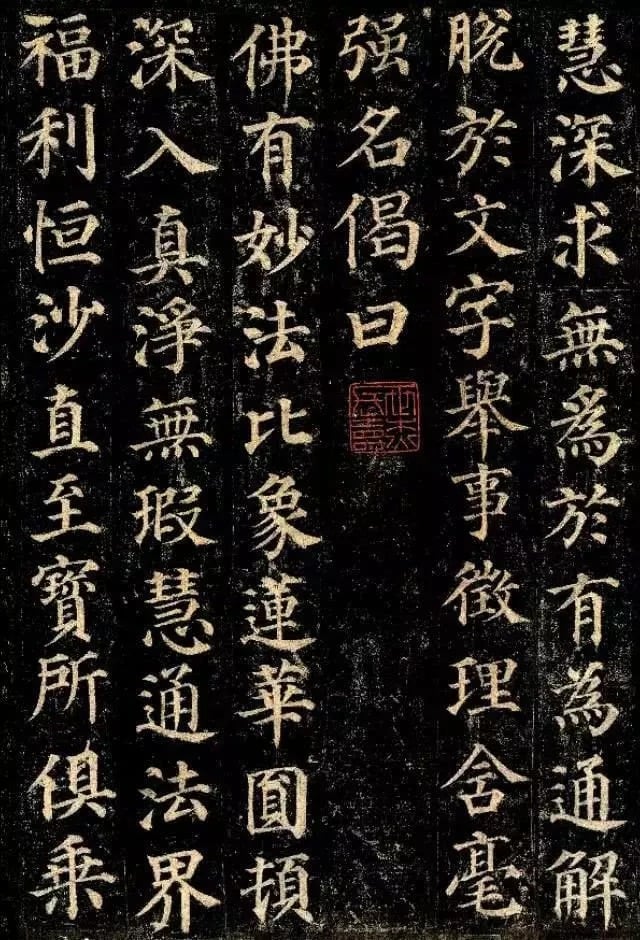 慧深求無爲於有為通解
脫於文字舉事徵理含毫
强名偈曰
佛有妙法比象蓮華圓頓
深入真淨無瑕慧通法界
福利恒沙直至寶所俱乘